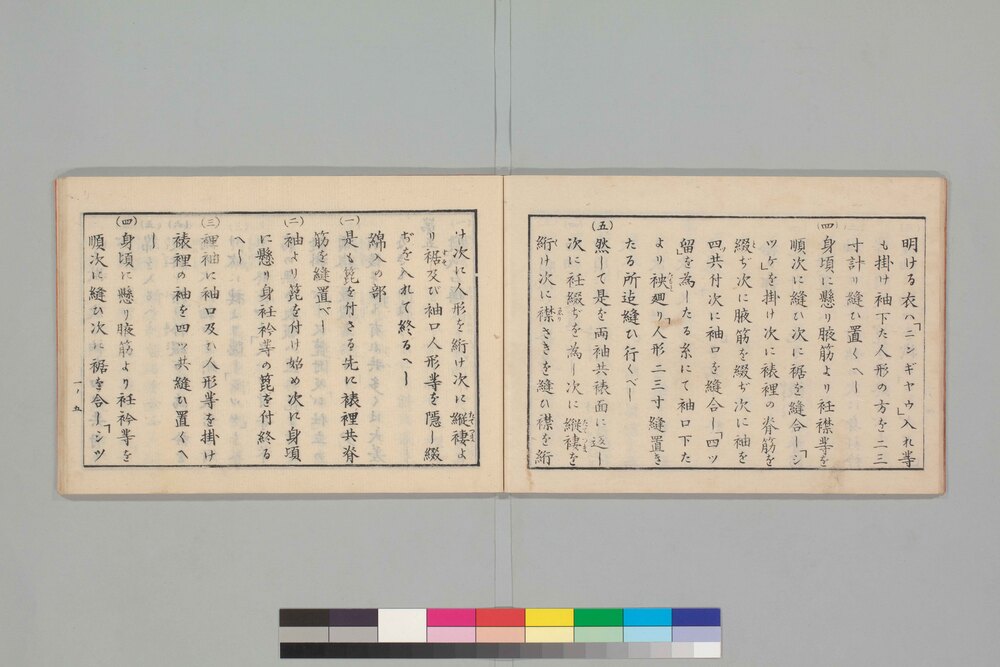 明ける衣ハ「ニンギヤウ」入れ等
も掛け袖下た人形の方を二三
寸計り縫ひ置くべし
(四)身頃に懸り腋筋より衽襟等を
順次に縫ひ次に裾を縫合し「シ
ツケ」を掛け次に裱裡の脊筋を
綴ぢ次に腋筋を綴ぢ次に袖を
四「共付次に袖口を縫合し「四ツ
留」を為したる糸にて袖口下た
より袂廻り「人形二三寸縫置き
たる所迄縫ひ行くべし
(五)然して是を両袖共裱面に返し
次に衽綴ぢを為し次に縦褄を
絎け次に襟さきを縫ひ襟を絎
け次に人形を絎け次に縦褄よ
り裾及び袖口人形等を隠し綴
ぢを入れて終るべし
綿入の部
(一)是も箆を付さる先に裱裡共脊
筋を縫置べし
(二)袖より箆を付け始め次に身頃
に懸り身衽衿等の箆を付終る
べし
(三)裡袖に袖口及ひ人形等を掛け
裱裡の袖を四ツ共縫ひ置くべ
し
(四)身頃に懸り腋筋より衽衿等を
順次に縫ひ次に裾を合し「シツ
一ノ五